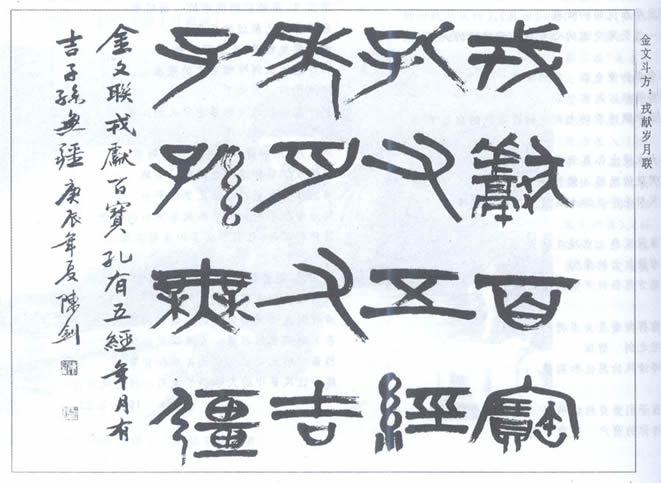 金文斗方：戎献岁月联
戎獻百寶
孔有五經
年月有吉
子孫無彊
金文聯戎獻百寶孔有五經年月有
吉子孫無疆 庚辰年夏 陳劍